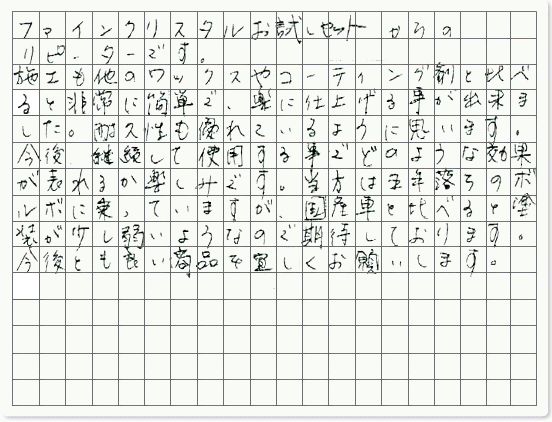 ファインクリスタルお試しセット からの
リピーターです。
施工も他のワックスやコーティング剤と比べ
ると非常に簡単で、楽に仕上げる事が出来ま
した。耐久性も優れているように思います。
今後、継続して使用する事でどのような効果
が表れるか楽しみです。当方は五年落ちのボ
ルボに乗っていますが、国産車と比べると塗
装が少し弱いようなので期待しております。
今後とも良い商品を宜しくお願いします。